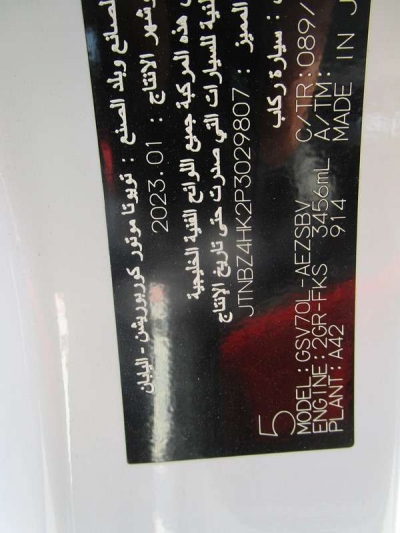 لصانع وبلد الصنع : تويوتا موتور كوربوريشن - اليابان
وشهر الانتاج : 2023.01
هذه المركبة جميع اللوائح الفنية الخليجية
للسيارات التي صدرت حتى تاريخ الإنتاج
المميز : JTNBZ4HK2P3029807
: سيارة ركاب
5
MODEL:GSV70L-AEZSBV C/TR:089/
ENGINE:2GR-FKS 3456mL A/TM:
PLANT:A42 914 MADE IN J